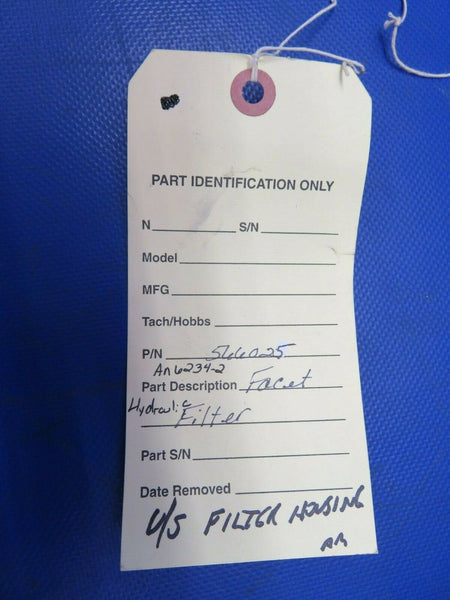 PART IDENTIFICATION ONLY
N S/N
Model
MFG
Tach/Hobbs
P/N 566025
An 6234-2
Part Description Facet
Hydraulic Filter
Part S/N
Date Removed
U/S FILTER HOUSING
AR